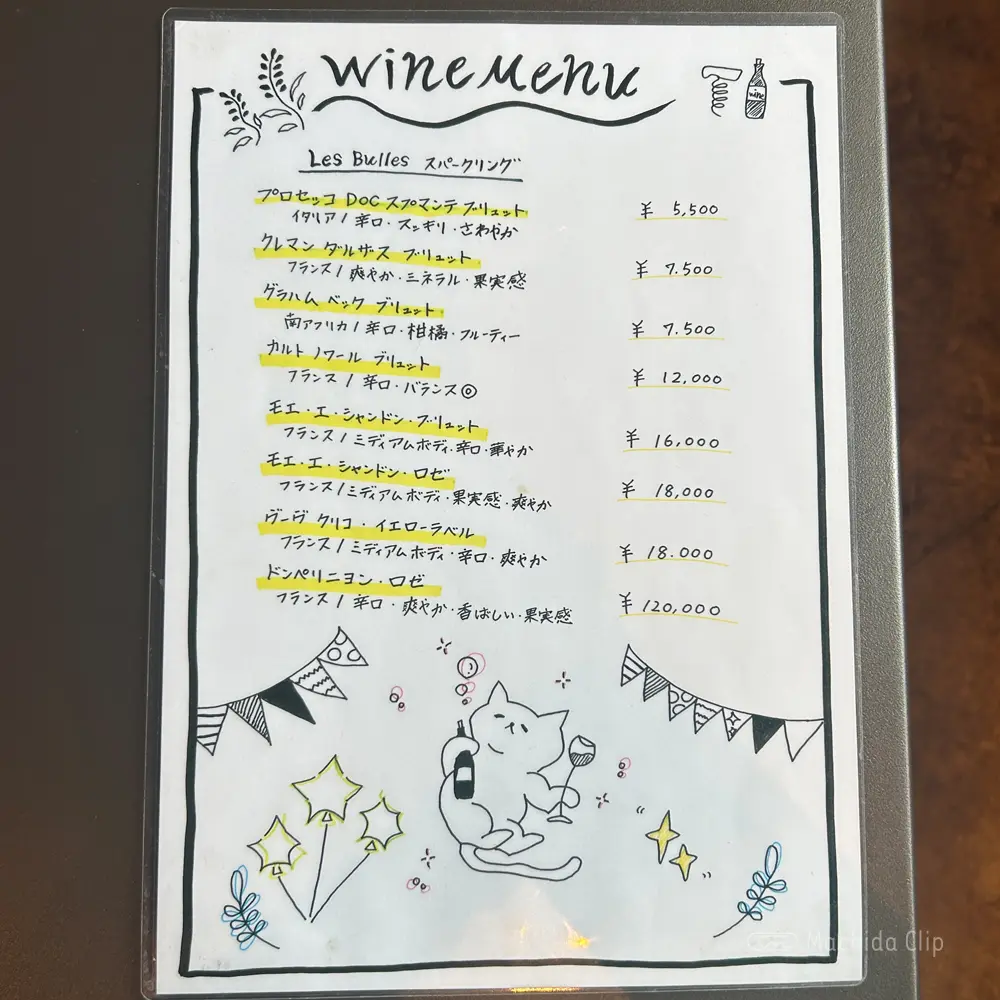 wine menu
wine
Les Bulles スパークリング
プロセッコ DOC スプマンテ ブリュット ¥ 5,500
イタリア / 辛口・スッキリ・さわやか
クレマン ダルザス ブリュット
フランス / 爽やか・ミネラル・果実感 ¥ 7.500
グラハム ベック ブリュット
南アフリカ / 辛口・柑橘・フルーティー ¥ 7.500
カルト ノワール ブリュット
フランス / 辛口・バランス◎ ¥ 12,000
モエ・エ・シャンドン・ブリュット
フランス / ミディアムボディ・辛口・華やか ¥ 16,000
モエ・エ・シャンドン・ロゼ
フランス / ミディアムボディ・果実感・爽やか ¥ 18,000
ヴーヴ クリコ・イエローラベル
フランス / ミディアムボディ・辛口・爽やか ¥ 18.000
ドンペリニヨン・ロゼ
フランス / 辛口・爽やか・香ばしい・果実感 ¥ 120,000
Machida Clip